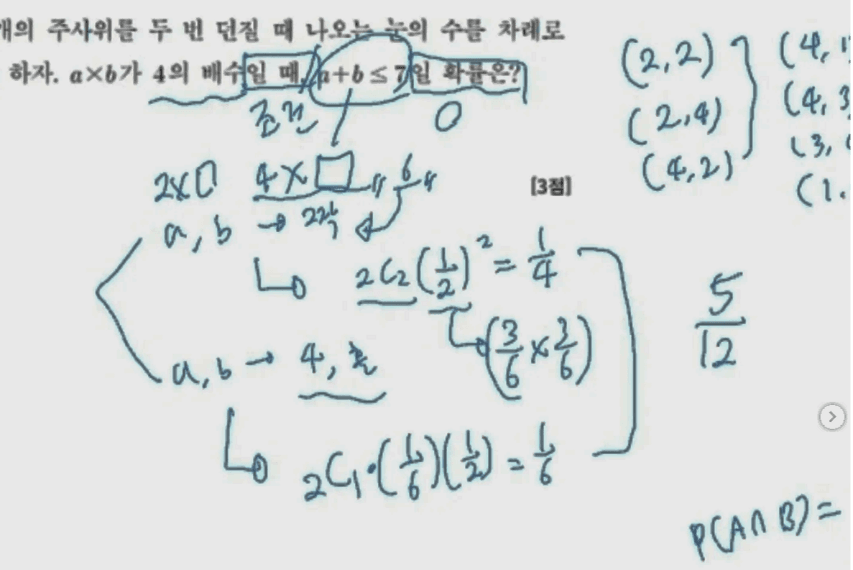 개의 주사위를 두 번 던질 때 나오는 눈의 수를 차례로
하자. a×b가 4의 배수일 때, a+b≤7일 확률은?
조건
[3점]
2×□ 4×□ 6
a, b → 2짝
₂C₂(1/2)² = 1/4
(3/6 × 3/6)
a, b → 4, 홀
₂C₁·(1/6)(1/2) = 1/6
5/12
(2,2)
(2,4)
(4,2)
(4, 1
(4, 3
(3,
(1.
P(A∩B) =